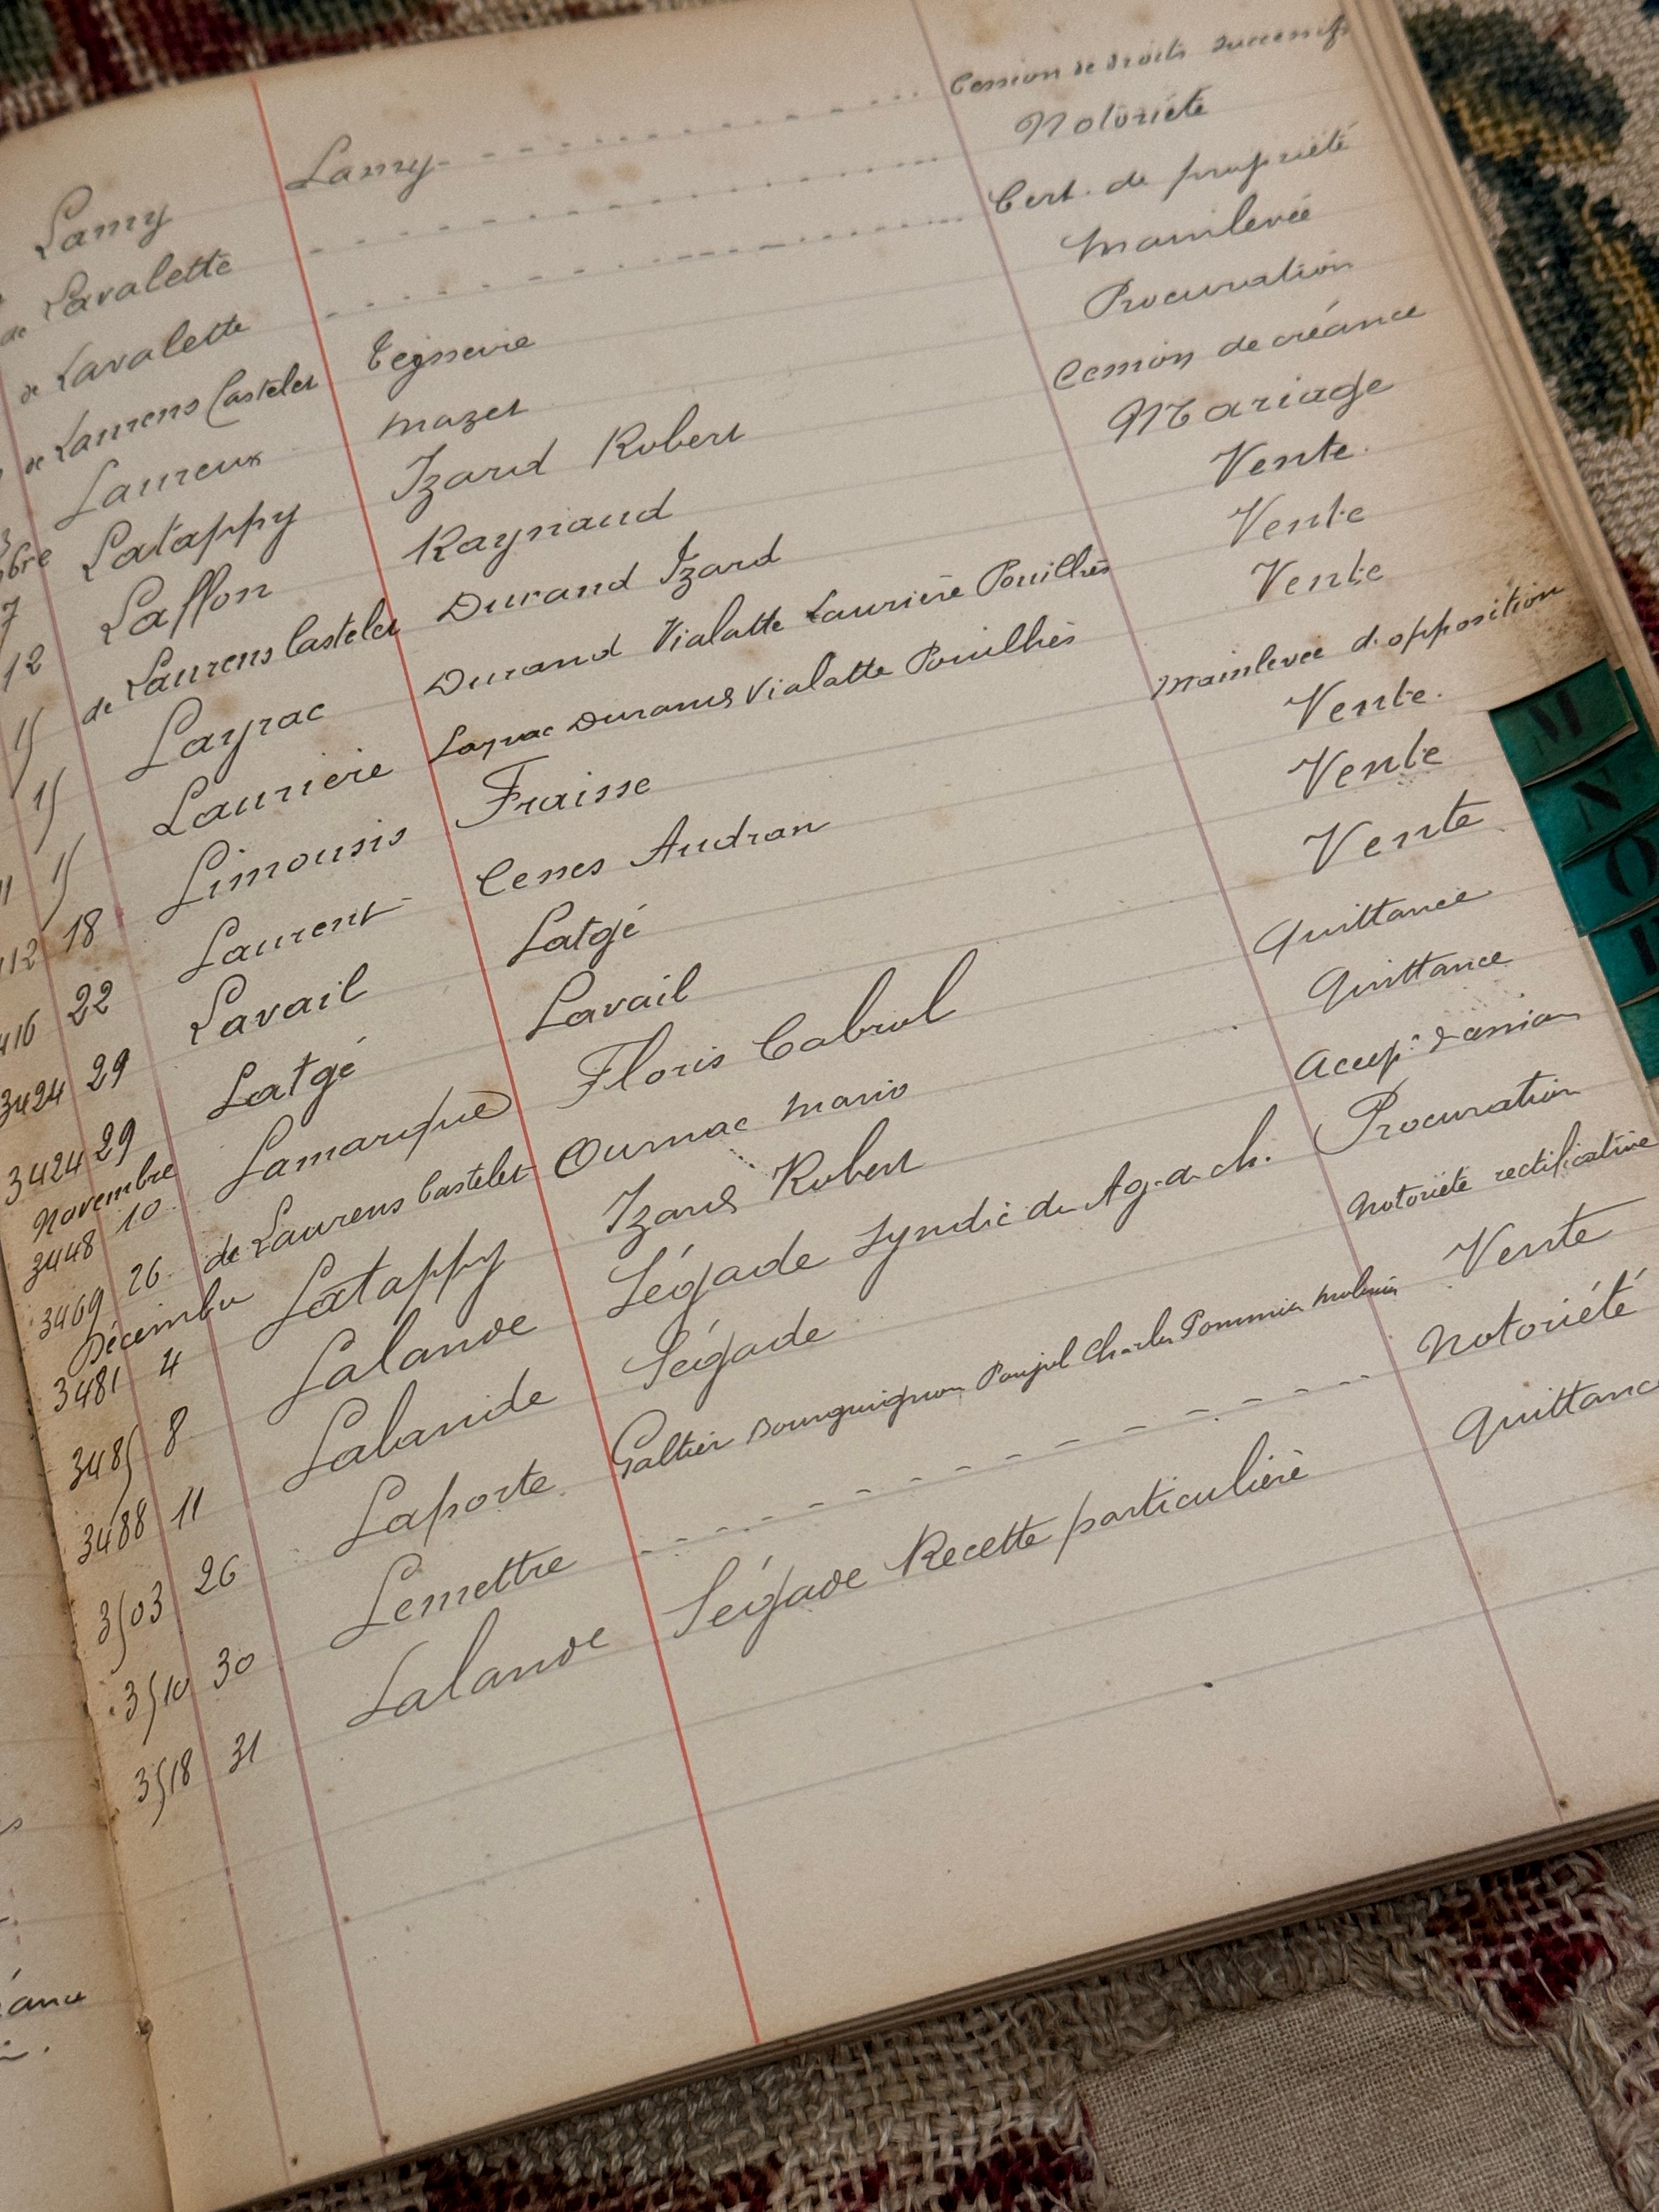 Lamy Lamy Cession de droits successifs
de Lavalette Notoriété
de Lavalette Cert. de propriété
de Laurens Castelet Teisseire Mainlevée
Laureux Mazet Procuration
bre Latappy Izard Robert Cession de créance
7 Laffon Raynaud Mariage
12 de Laurens Castelet Durand Izard Vente
15 Layrac Durand Vialatte Laurière Pouilhès Vente
15 Laurière Layrac Durand Vialatte Pouilhès Vente
11 15 Limousis Fraisse Mainlevée d'opposition
112 18 Laurent Cenes Audran Vente
416 22 Lavail Latgé Vente
3424 29 Latgé Lavail Vente
3424 29 Lamarque Floris Cabrol Quittance
Novembre
3448 10 de Laurens Castelet Ournac Mario Quittance
3469 26 Latappy Izard Robert Accep. de cession
Décembre
3481 4 Lalande Ségade Syndic de Ag. a. ch. Procuration
3485 8 Labande Ségade Notoriété rectificative
3488 11 Laporte Galtier Bourguignon Poujol Charles Pommier Molinier Vente
3503 26 Lemettre Notoriété
3510 30 Lalande Ségade Recette particulière Quittance
3518 31
éance
M
N
O